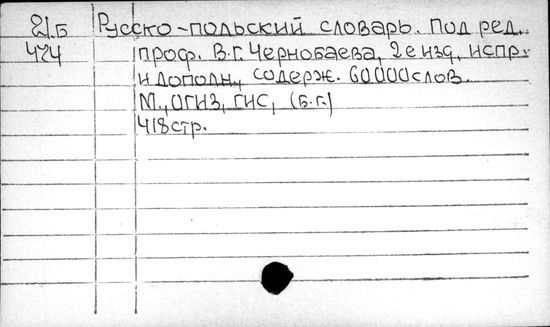 21.Б Русско-польский словарь. Под ред.
474 проф. В.Г. Чернобаева, 2е изд, испр.
и дополн., содерж. 60000 слов.
М., ОГИЗ, ГИС, (б.г.)
418 стр.